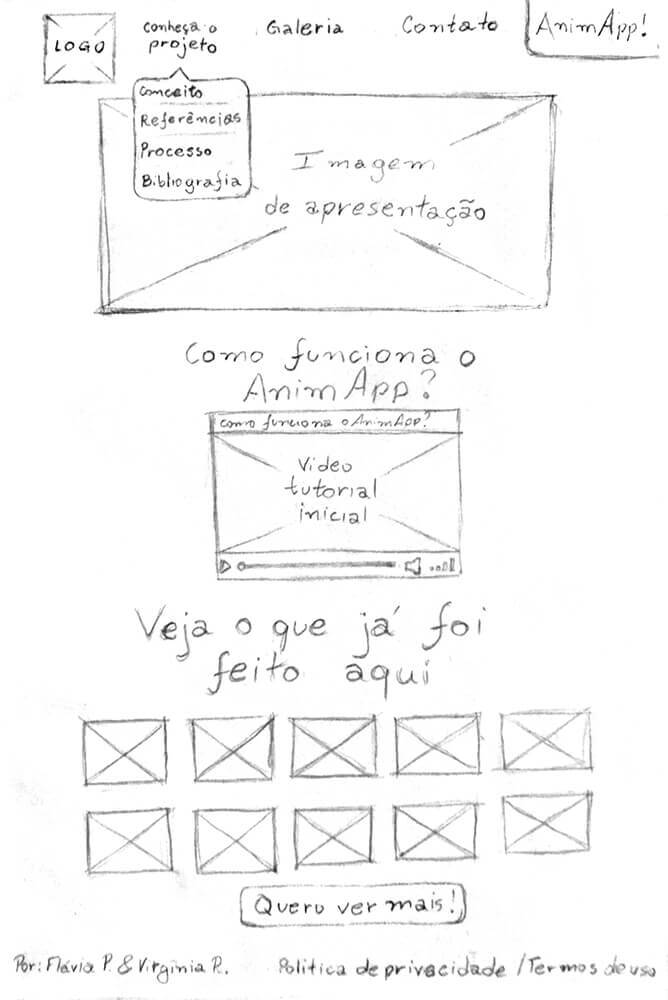 LOGO
conheça o
projeto
Galeria
Contato
AnimApp!
Conceito
Referências
Processo
Bibliografia
Imagem
de apresentação
Como funciona o
AnimApp?
como funciona o AnimApp?
Video
tutorial
inicial
Veja o que já foi
feito aqui
Quero ver mais!
Por: Flávia P. & Virginia R.
Politica de privacidade / Termos de uso